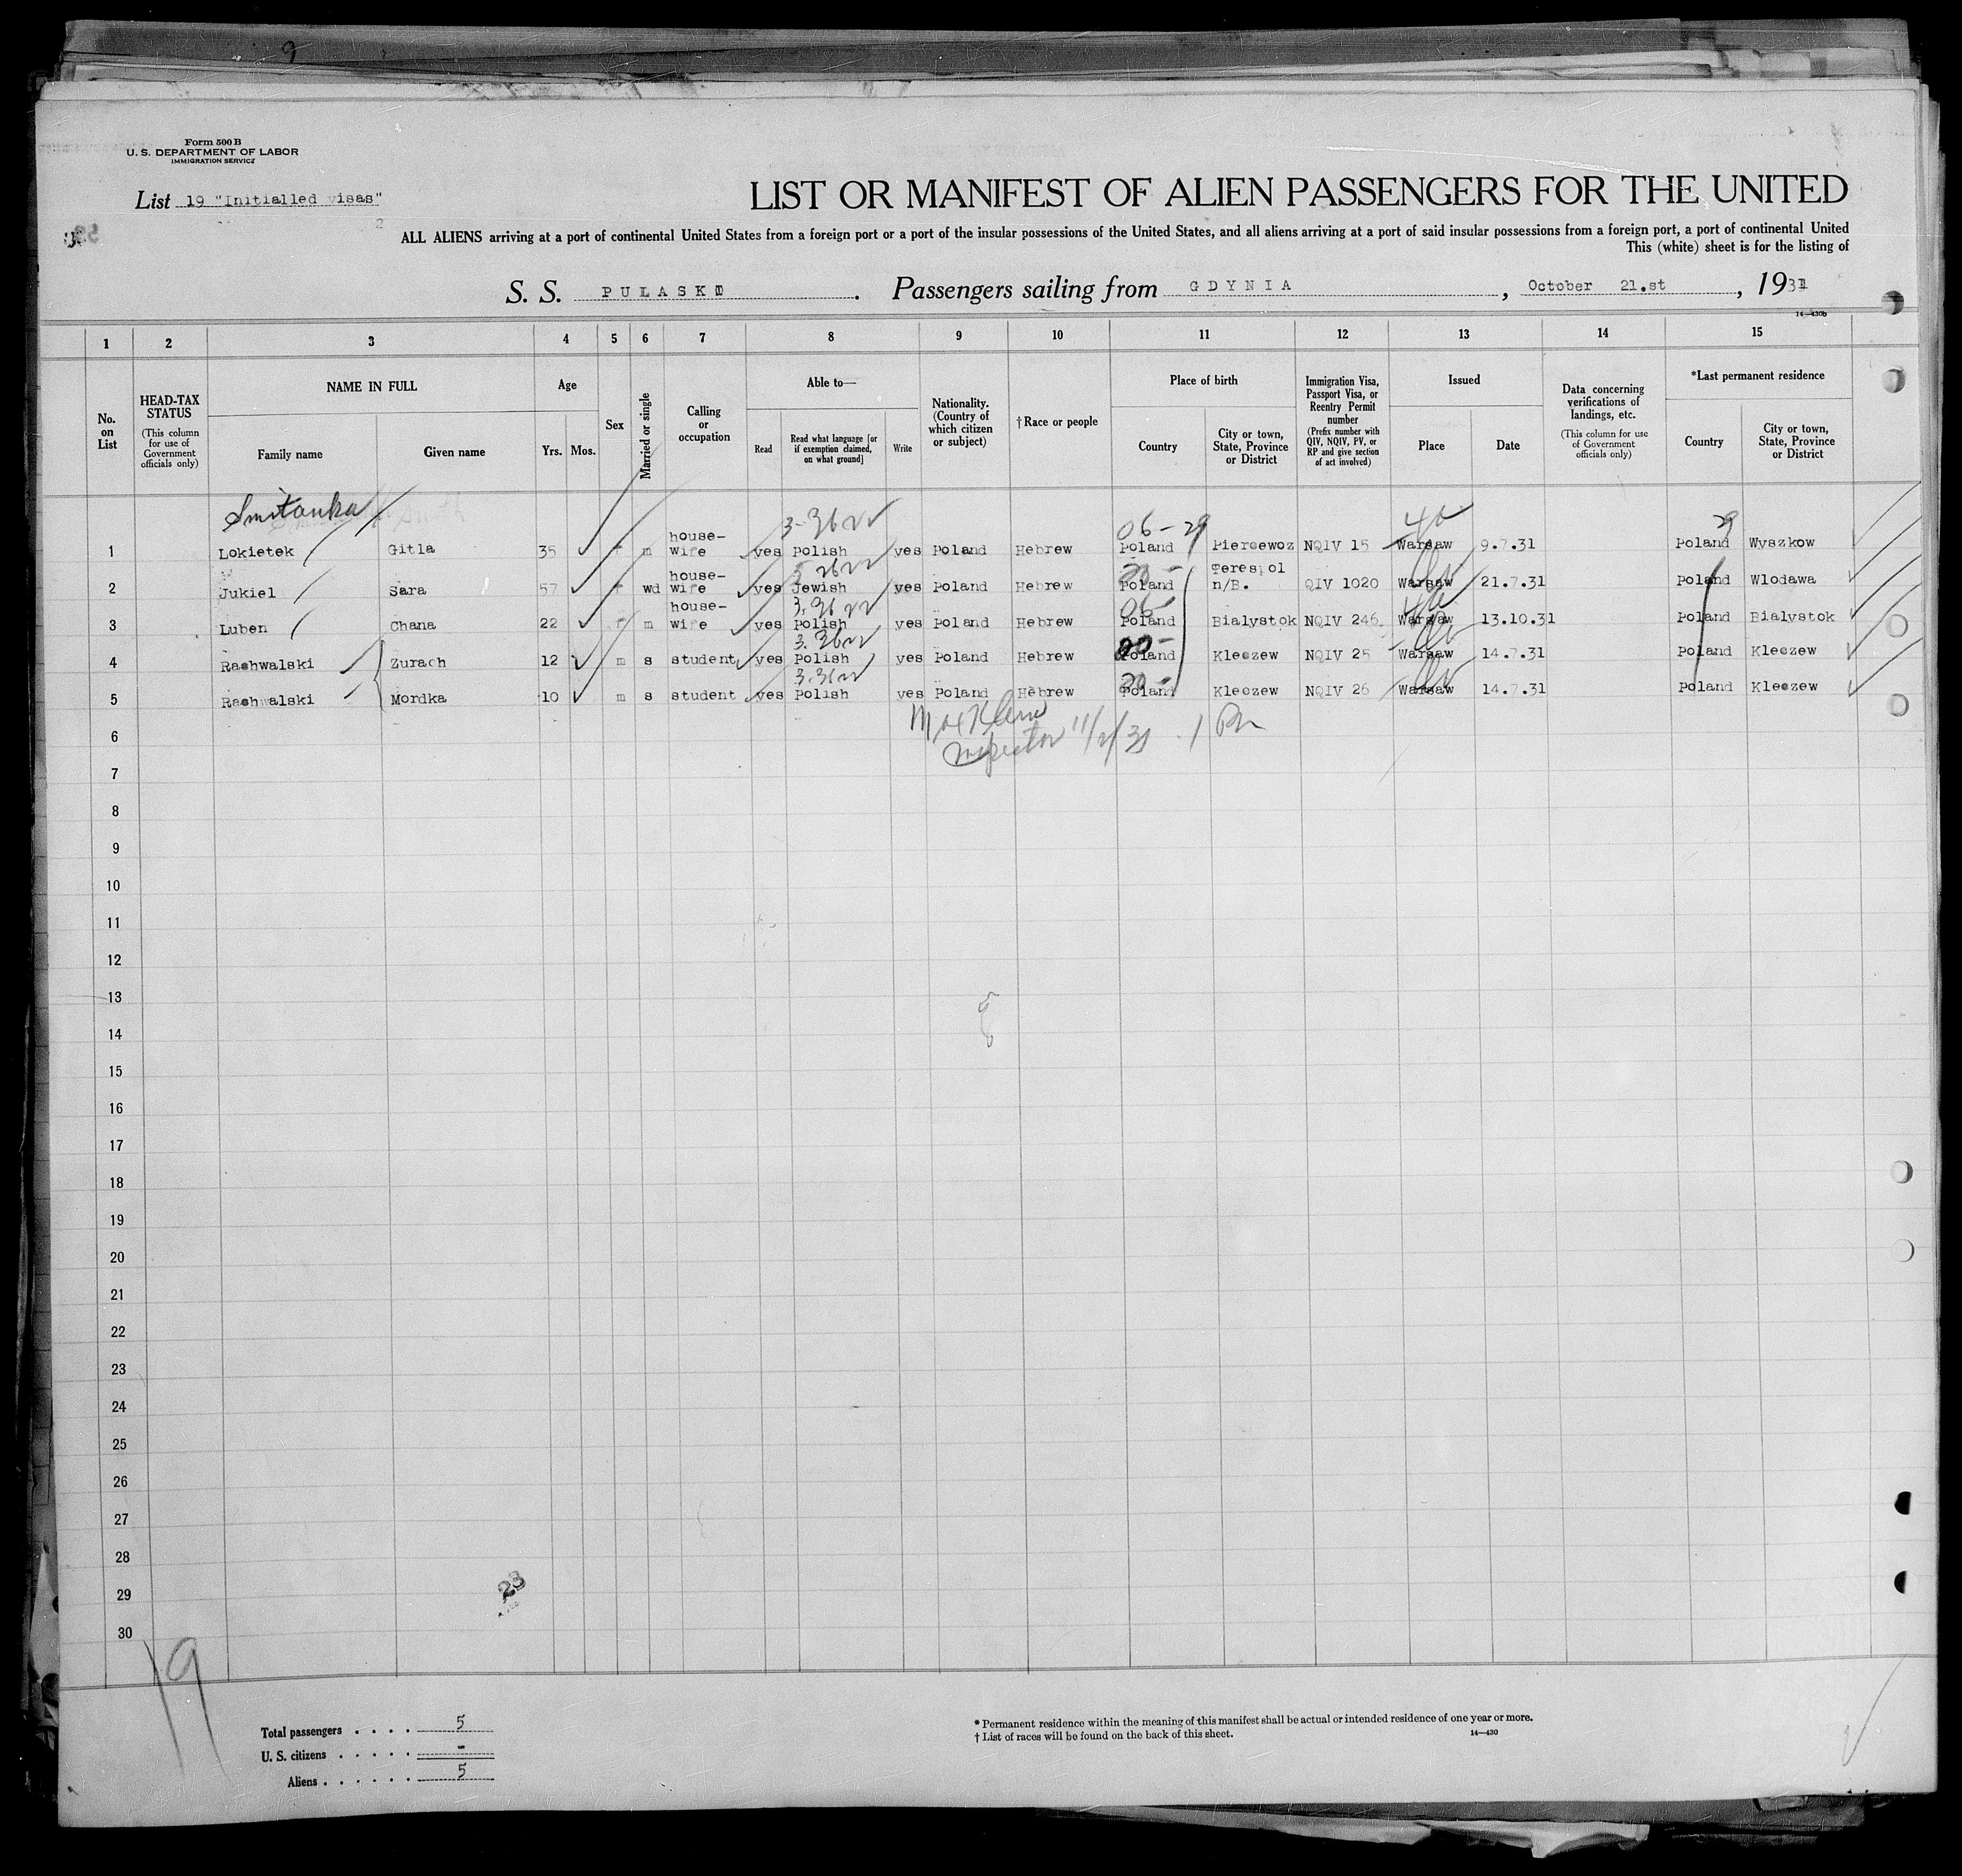 9
Form 500 B
U. S. DEPARTMENT OF LABOR
IMMIGRATION SERVICE
List 19 "Initialled visas"
2
LIST OR MANIFEST OF ALIEN PASSENGERS FOR THE UNITED
ALL ALIENS arriving at a port of continental United States from a foreign port or a port of the insular possessions of the United States, and all aliens arriving at a port of said insular possessions from a foreign port, a port of continental United
This (white) sheet is for the listing of
S. S. PULASKI . Passengers sailing from GDYNIA , October 21.st , 1931
14—430b
1 2 3 4 5 6 7 8 9 10 11 12 13 14 15
No. on List
HEAD-TAX STATUS
(This column for use of Government officials only)
NAME IN FULL
Family name Given name
Age
Yrs. Mos.
Sex
Married or single
Calling or occupation
Able to—
Read
Read what language [or if exemption claimed, on what ground]
Write
Nationality. (Country of which citizen or subject)
† Race or people
Place of birth
Country
City or town, State, Province or District
Immigration Visa, Passport Visa, or Reentry Permit number
(Prefix number with QIV, NQIV, PV, or RP and give section of act involved)
Issued
Place Date
Data concerning verifications of landings, etc.
(This column for use of Government officials only)
*Last permanent residence
Country
City or town, State, Province or District
Smitanka
06-29 29
1 Lokietek Gitla 35 f m house-wife yes Polish yes Poland Hebrew Poland Piercewoz NQIV 15 Warsaw 9.7.31 Poland Wyszkow
2 Jukiel Sara 57 f wd house-wife yes Jewish yes Poland Hebrew Poland Terespol n/B. QIV 1020 Warsaw 21.7.31 Poland Wlodawa
3 Luben Chana 22 f m house-wife yes Polish yes Poland Hebrew Poland Bialystok NQIV 246 Warsaw 13.10.31 Poland Bialystok
4 Rachwalski Zurach 12 m s student yes Polish yes Poland Hebrew Poland Kleczew NQIV 25 Warsaw 14.7.31 Poland Kleczew
5 Rachwalski Mordka 10 m s student yes Polish yes Poland Hebrew Poland Kleczew NQIV 26 Warsaw 14.7.31 Poland Kleczew
6
Inspector
7
8
9
10
11
12
13
14
15
16
17
18
19
20
21
22
23
24
25
26
27
28
29
23
30
19
Total passengers . . . . 5
U. S. citizens . . . . . -
Aliens . . . . . . 5
* Permanent residence within the meaning of this manifest shall be actual or intended residence of one year or more.
† List of races will be found on the back of this sheet.
14—430